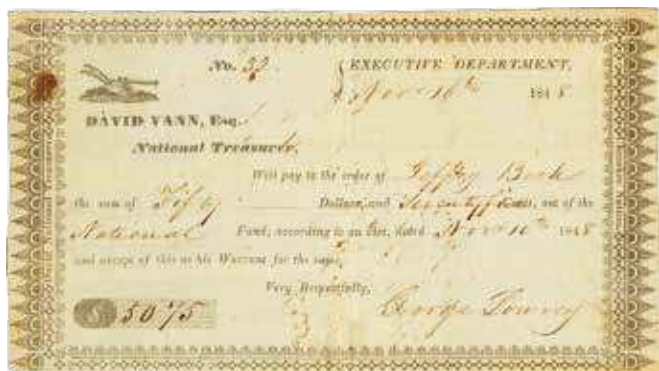 No. 39
EXECUTIVE DEPARTMENT,
Nov 16th 1848
DAVID VANN, Esq.
National Treasurer,
Will pay to the order of
the sum of Fifty Dollars, and Seventy five Cents, out of the
National Fund, according to an Act, dated Nov 10th 1848
and accept of this as his Warrant for the same.
Very Respectfully,
$ 50 75
George Lowrey